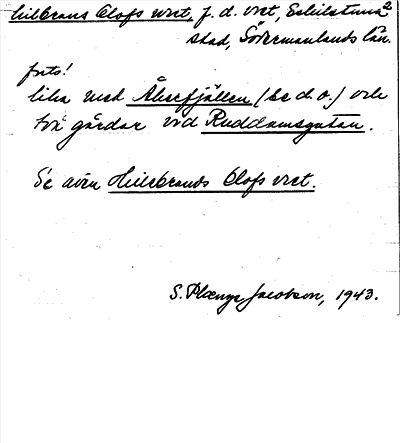 Hilbrans Olofs vret, f. d. vret, Eskilstuna 2
stad, Södermanlands län.
forts!
lika med Åkerfjällen (se d. o.) och
två gårdar vid Ruddamsgatan.
Se även Hillebrands Olofs vret.
S. Plænge Jacobson, 1943.